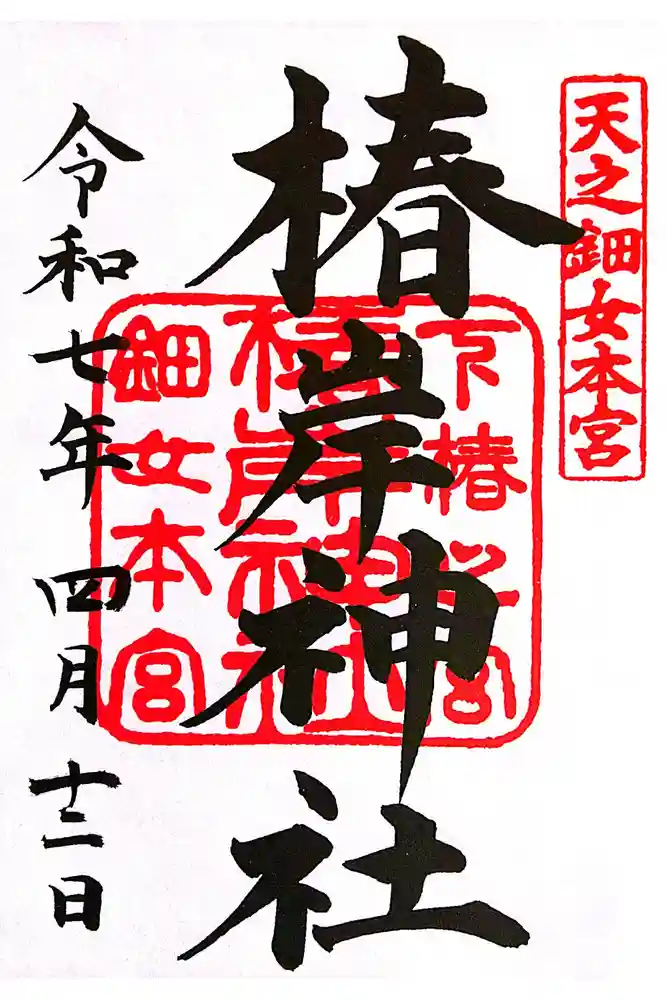 天之鈿女本宮
椿岸神社
下椿宮
椿岸神社
鈿女本宮
令和七年四月十二日